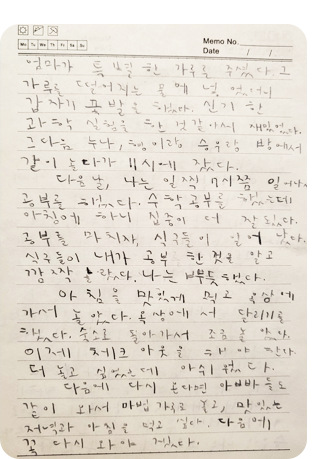 Memo No.
Mo Tu We Th Fr Sa Su
Date / /
엄마가 특별한 가루를 주셨다. 그
가루를 떨어지는 물에 넣었더니
갑자기 폭발을 했다. 신기한
과학 실험을 한 것 같아서 재밌었다.
그다음 누나, 형이랑 승우랑 방에서
같이 놀다가 11시에 잤다.
다음날, 나는 일찍 7시쯤 일어나
공부를 했다. 수학 공부를 했는데
아침에 하니 집중이 더 잘 됐다.
공부를 마치자, 식구들이 일어났다.
식구들이 내가 공부 한 것을 알고
깜짝 놀랐다. 나는 뿌듯했다.
아침을 맛있게 먹고 옥상에
가서 놀았다. 옥상에서 달리기를
했다. 숙소로 돌아가서 조금 놀았다.
이제 체크 아웃을 해야 한다.
더 놀고 싶었는데 아쉬웠다.
다음에 다시 온다면 아빠들도
같이 와서 마법 가루로 놀고, 맛있는
저녁과 아침을 먹고 싶다. 다음에
꼭 다시 와야 겠다.